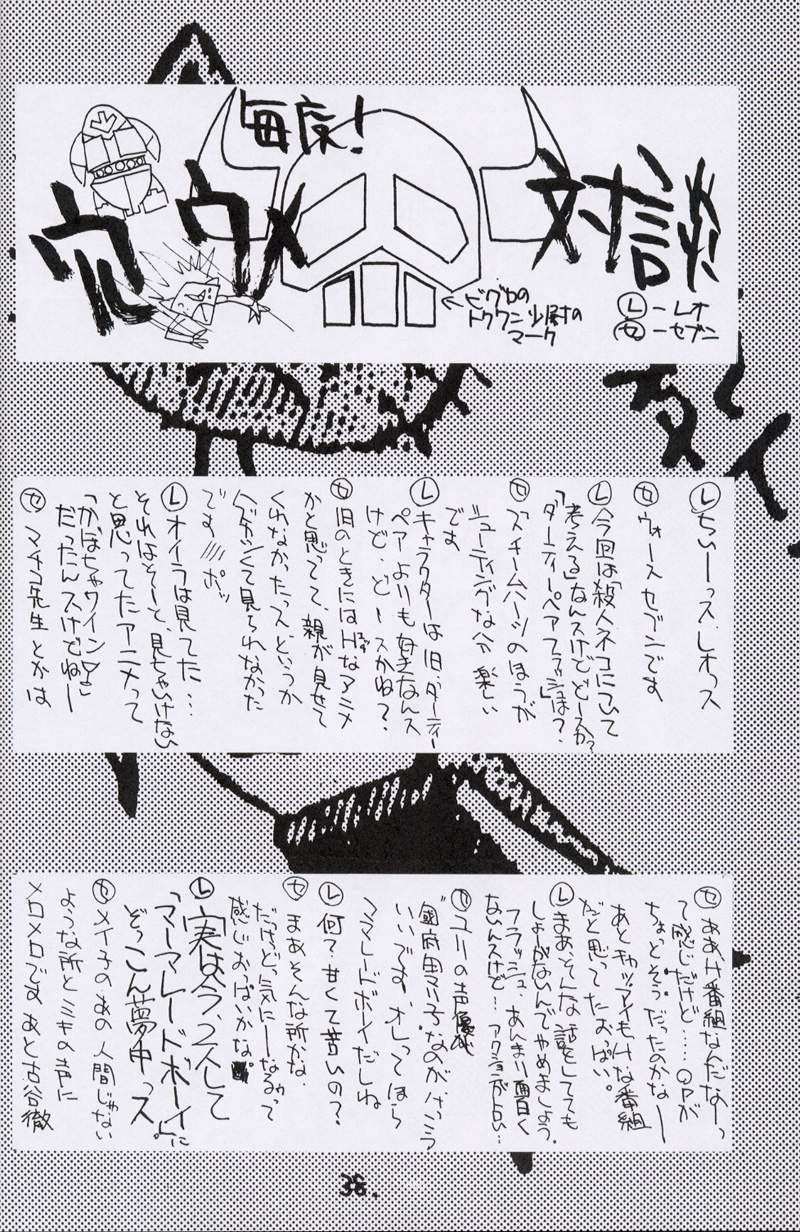 毎度!
穴ウメ
対談
←ビグロの
トクワン少尉の
マーク
Ⓛ-レオ
㋝-セブン
Ⓛちぃーっス、レオっス
㋝ウォースセブンです
Ⓛ今回は「殺人ネコについて
考える」なんスけどどースか?
「ダーティーペアフラッシュ」は?
シューティングな分楽しい
です
Ⓛキャラクターは旧、ダーティー
ペアよりも好きなんス
けど、どースかね?
㋝旧のときにはHなアニメ
かと思ってて、親が見せて
くれなかったっス、というか
ハズかしくて見られなかった
です///ポッ
Ⓛオイラは見てた…
それはそーと、見ちゃいけない
と思ってたアニメって
「かぼちゃワイン♡」
だったんスけどねー
㋝マチコ先生とかは
㋝ああH番組なんだなーっ
て感じだけど…OPが
ちょっとそうだったのかなー
あとキャッツアイもHな番組
だと思ってたおっぱい。
Ⓛまあ、そんな話をしてても
しょーがないんでやめましょう。
フラッシュ、あんまり面白く
ないんスけど…アクションが白い…
㋝ユリの声優が
"國府田マリ子"なのがけっこう
いいです、オレってほら
ママレードボイだしね
Ⓛ何?甘くて苦いの?
㋝まあそんな所かな、
だけど気にーなるぅって
感じおっぱいかな。
Ⓛ実は今、2人して
「マーマレードボーイ」に
ぞっこん夢中っス
㋝メイ子のあの人間じゃない
ような所とミキの声に
メロメロです。あと古谷徹
38.